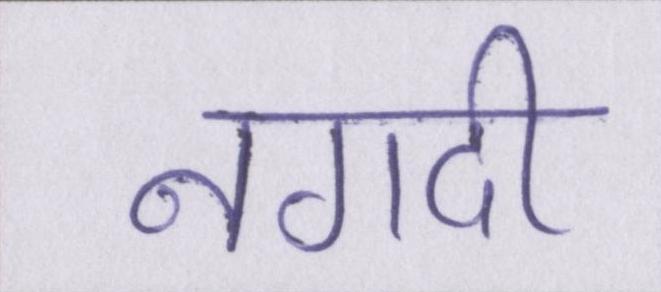 नगदी